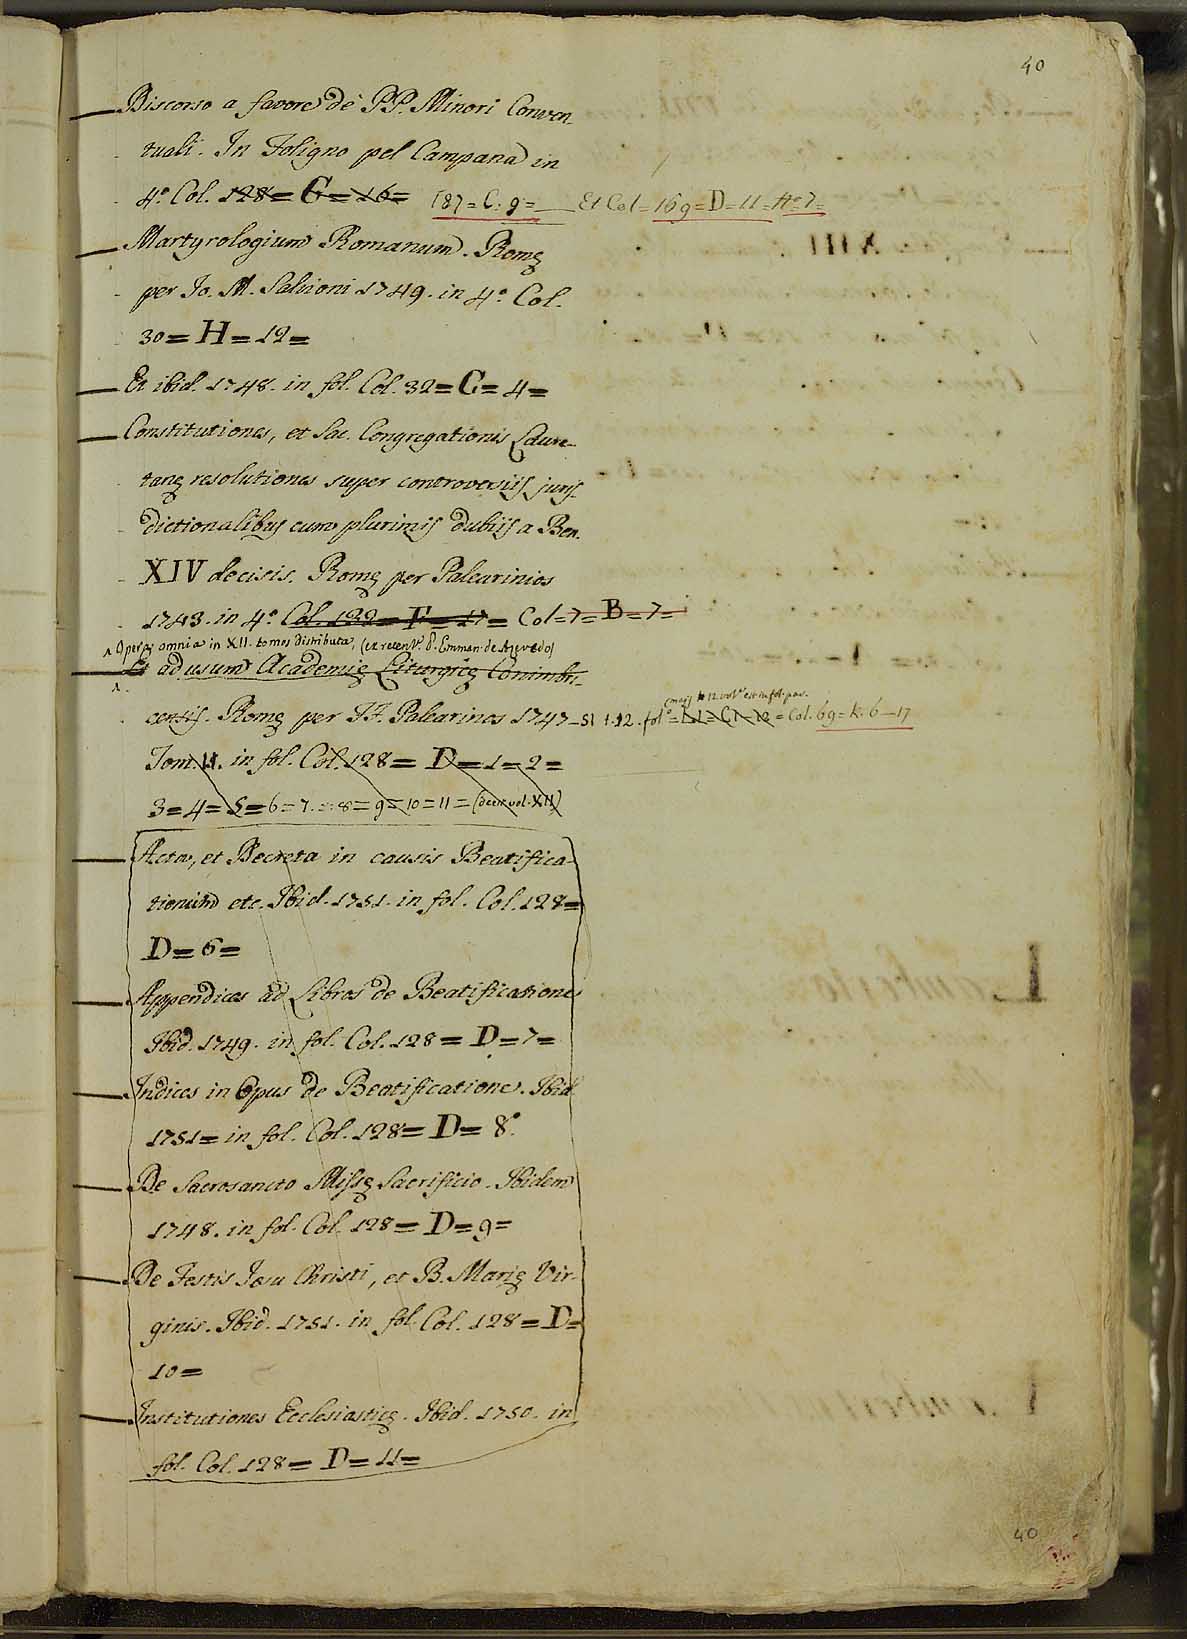 40
Discorso a favore de PP. Minori Conven-
tuali. In Foligno pel Campana in
4.º Col. 128= G= 16= 187=C:9= Et Col=169=D=11=nº7=
Martyrologium Romanum. Romę
per Jo. M. Salvioni 1749. in 4.º Col.
30= H= 12=
Et ibid. 1748. in fol. Col. 32= C= 4=
Constitutiones, et Sac. Congregationis Laure-
tanę resolutiones super controversijs juris-
dictionalibus cum plurimis dubijs a Ben.
XIV decisis. Romę per Palearinios
1743. in 4.º Col. 132= F= 17= Col=7=B=7=
Opera omnia in XII. tomos distributa, (ex recens. P. Emman. de Azevedo)
Et ad usum Academię Liturgicę Conimbri-
12 vol.
censis. Romę per FF. Palearinos 1747-51 t.12. folº = Col. 69=k.6-17
Tom. 11. in fol. Col. 128= D=1=2=
3=4=5=6=7=8=9=10=11= (deest vol. XII)
Acta, et Decreta in causis Beatifica-
tionum etc. Ibid. 1751. in fol. Col. 128=
D= 6=
Appendices ad Libros de Beatificatione
Ibid. 1749. in fol. Col. 128= D=7=
Indices in Opus de Beatificatione. Ibid
1751= in fol. Col. 128= D= 8.º
De Sacrosancto Missę Sacrificio. Ibidem
1748. in fol. Col. 128= D=9=
De Festis Jesu Christi, et B. Marię Vir-
ginis. Ibid. 1751. in fol. Col. 128= D=
10=
Institutiones Ecclesiasticę. Ibid. 1750. in
fol. Col. 128= D= 11=
40